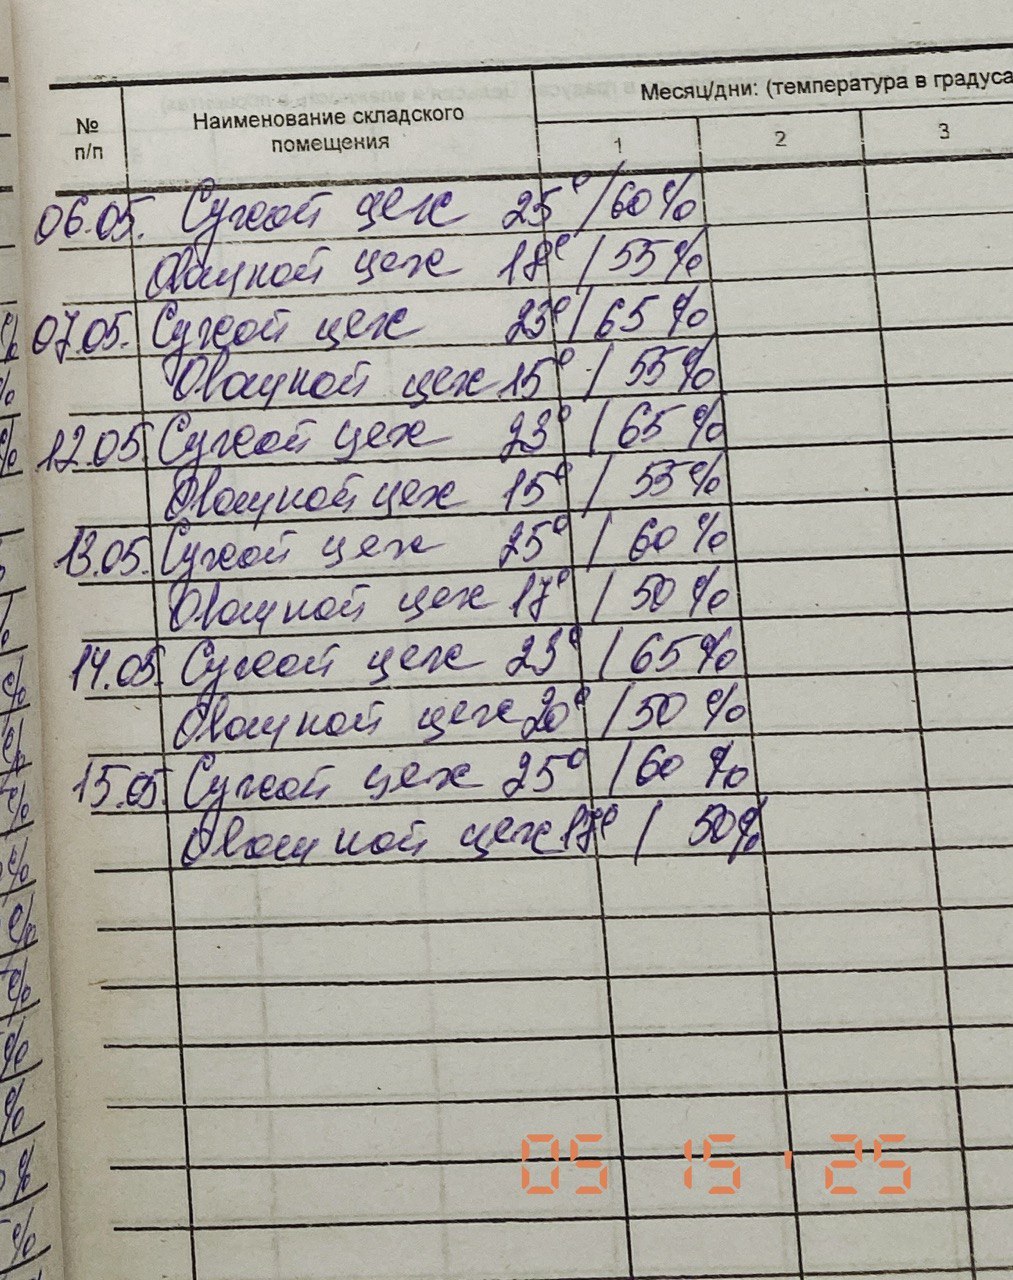 № п/п
Наименование складского помещения
Месяц/дни: (температура в градуса
1 2 3
06.05. Сухой цех 25° / 60%
Овощной цех 18° / 55%
07.05. Сухой цех 23° / 65%
Овощной цех 15° / 55%
12.05 Сухой цех 23° / 65%
Овощной цех 15° / 55%
13.05. Сухой цех 25° / 60%
Овощной цех 17° / 50%
14.05. Сухой цех 23° / 65%
Овощной цех 20° / 50%
15.05. Сухой цех 25° / 60%
Овощной цех 17° / 50%
05 15 ' 25